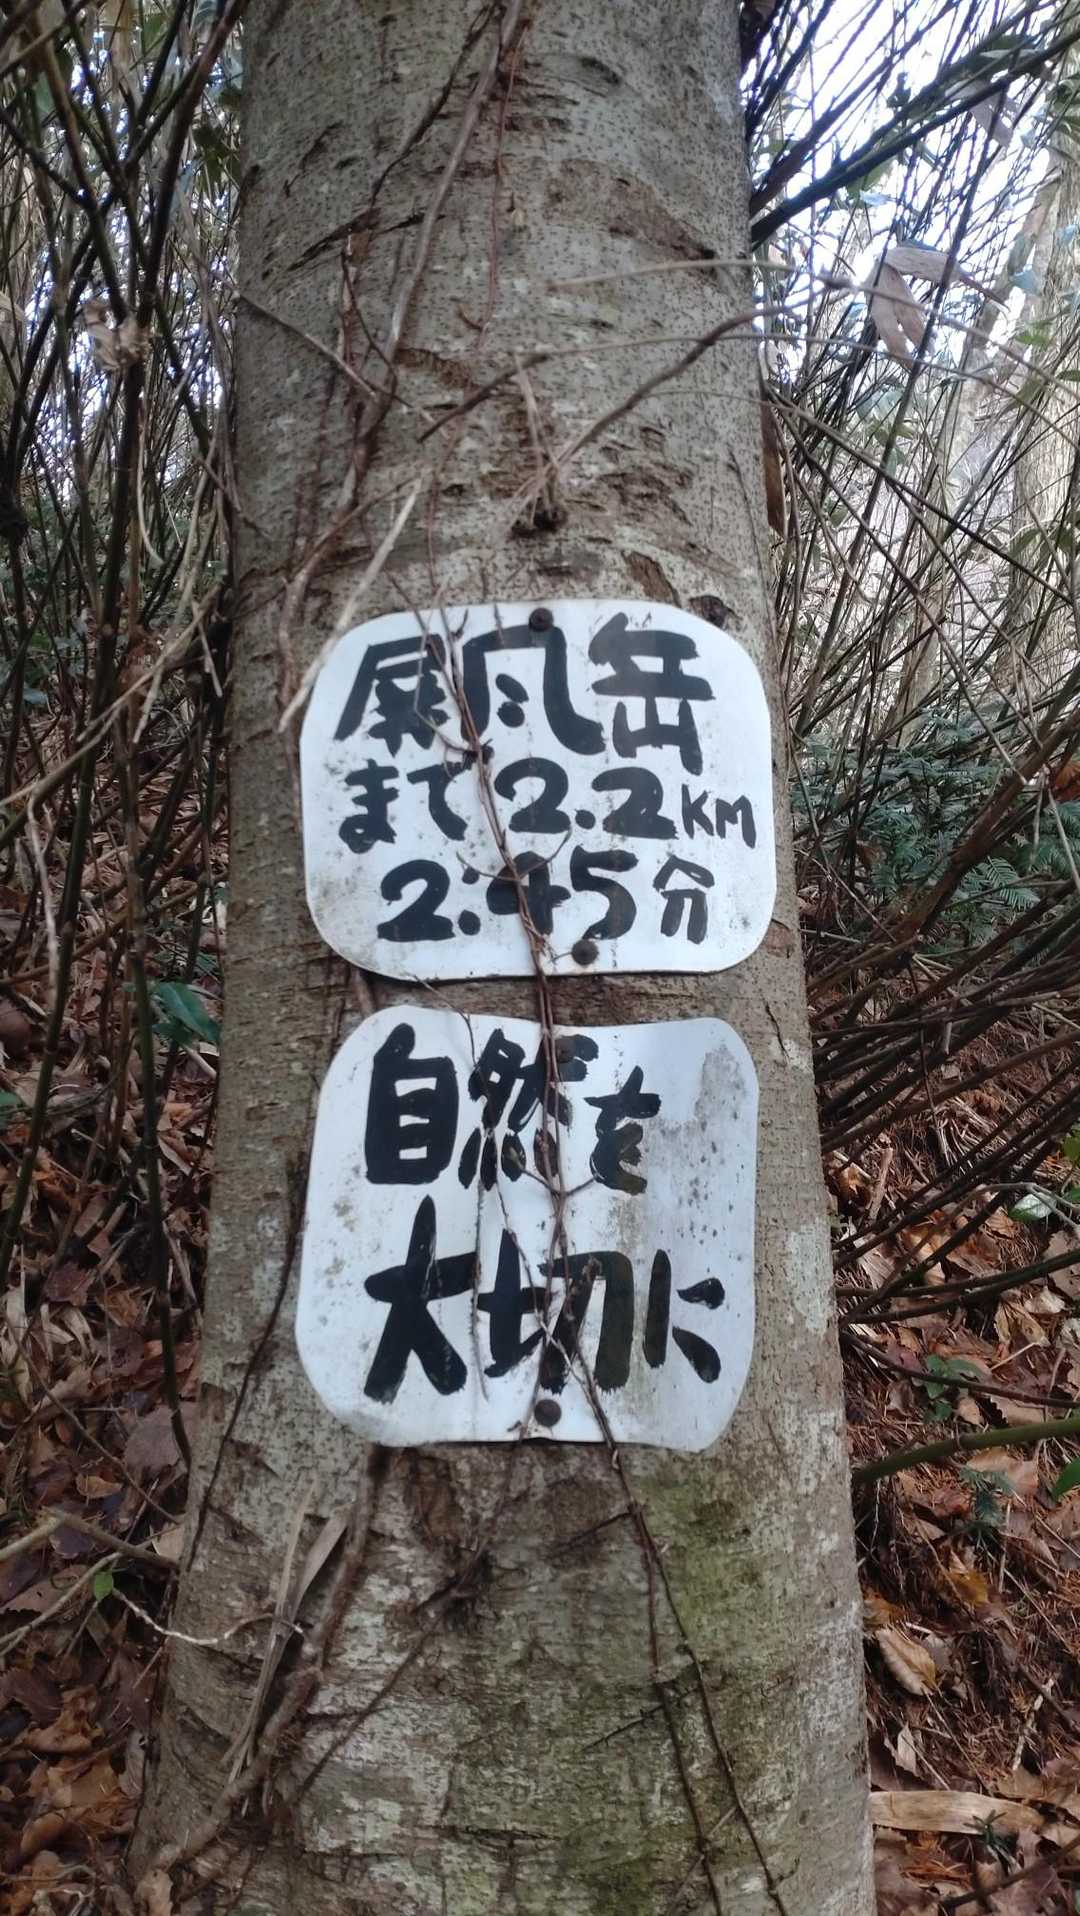 屏風岳
まで2.2KM
2:45分
自然を
大切に